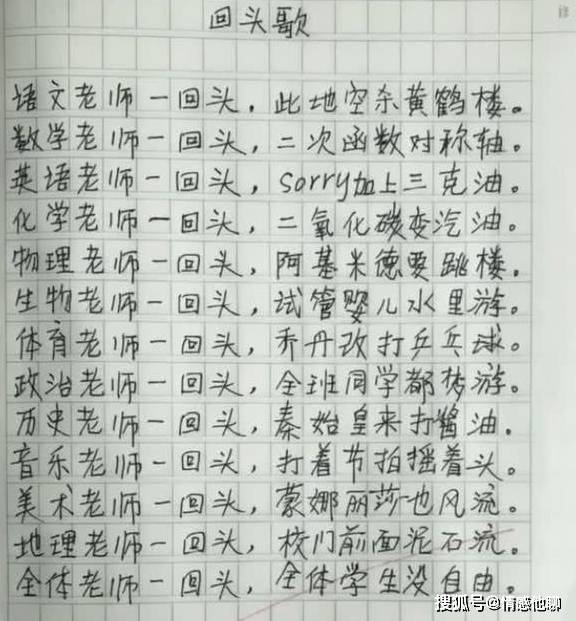 回头歌
语文老师一回头，此地空余黄鹤楼。
数学老师一回头，二次函数对称轴。
英语老师一回头，sorry加上三克油。
化学老师一回头，二氧化碳变汽油。
物理老师一回头，阿基米德要跳楼。
生物老师一回头，试管婴儿水里游。
体育老师一回头，乔丹改打乒乓球。
政治老师一回头，全班同学都梦游。
历史老师一回头，秦始皇来打酱油。
音乐老师一回头，打着节拍摇着头。
美术老师一回头，蒙娜丽莎也风流。
地理老师一回头，校门前面泥石流。
全体老师一回头，全体学生没自由。
搜狐号@情感他聊